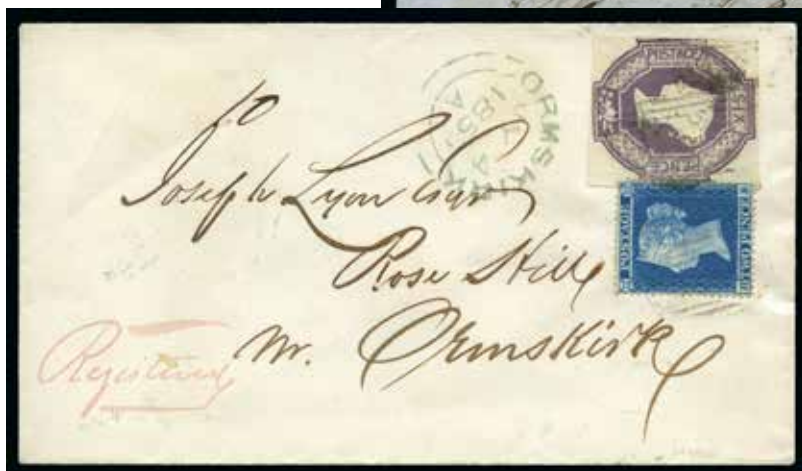 ORMSKIRK
POSTAGE
SIX
PENCE
POSTAGE
TWO PENCE
Joseph Lyon Esqr
Rose Hill
Nr. Ormskirk
Registered